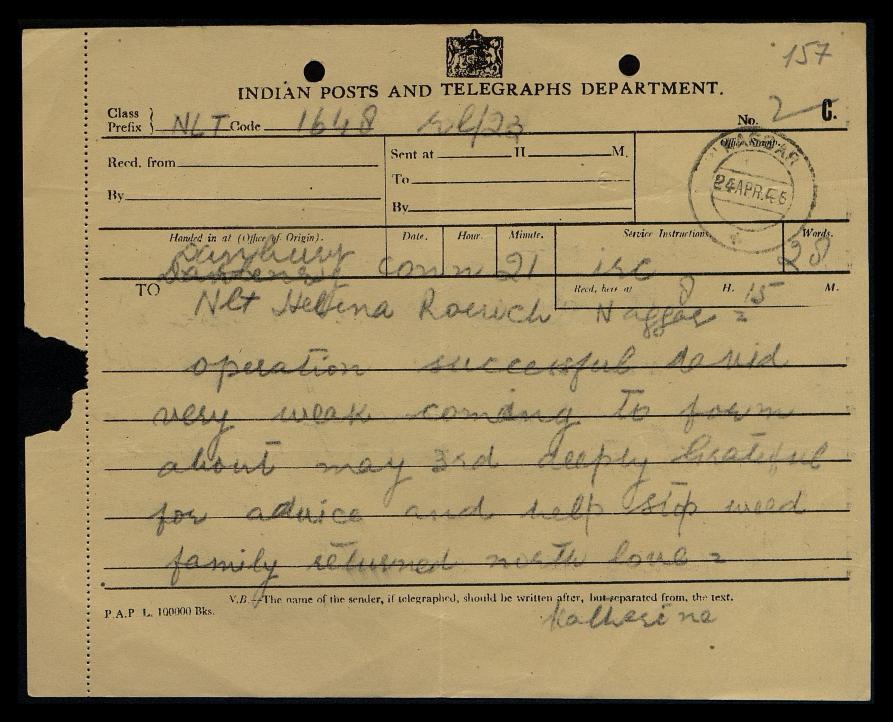 157
INDIAN POSTS AND TELEGRAPHS DEPARTMENT.
Class Prefix } NLT Code 1648 No. 2 C.
Recd. from Sent at H. M. Office Stamp.
To
By By
NAGGAR
24 APR. 46
Handed in at (Office of Origin). Date. Hour. Minute. Service Instructions. Words.
Danbury Conn 21 28
Recd. here at 8 H. 15 M.
TO
Nlt Helena Roerich Naggar =
operation successful david
very weak coming to form
about may 3rd deeply Grateful
for advice and help stop weed
family returned north love =
N.B.—The name of the sender, if telegraphed, should be written after, but separated from, the text.
P.A.P L. 100000 Bks.
Katherine